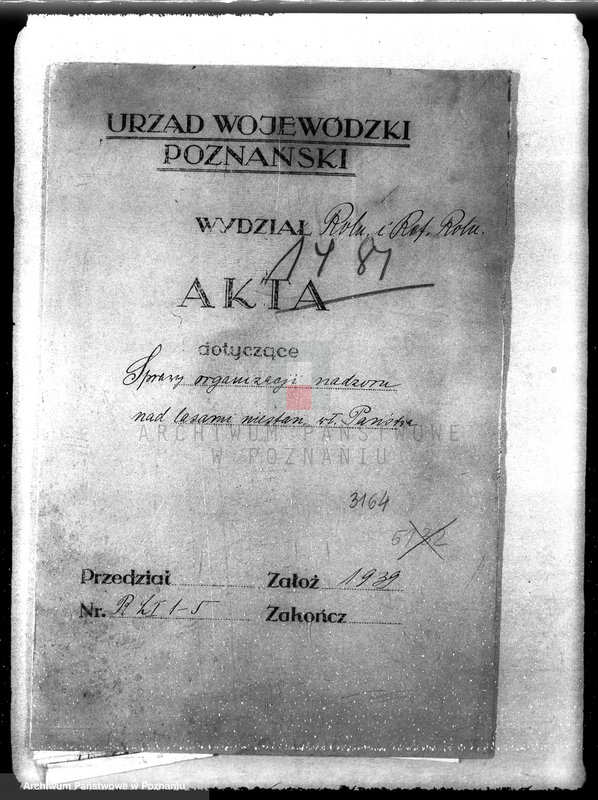 URZĄD WOJEWÓDZKI
POZNAŃSKI
WYDZIAŁ Roln. i Ref. Roln.
1481
AKTA
dotyczące
Sprawy organizacji nadzoru
nad lasami niestan. wł. Państwa
ARCHIWUM PAŃSTWOWE
W POZNANIU
3164
5132
Przedział
Założ 1939
Nr. R LI 1-5
Zakończ
Archiwum Państwowe w Poznaniu